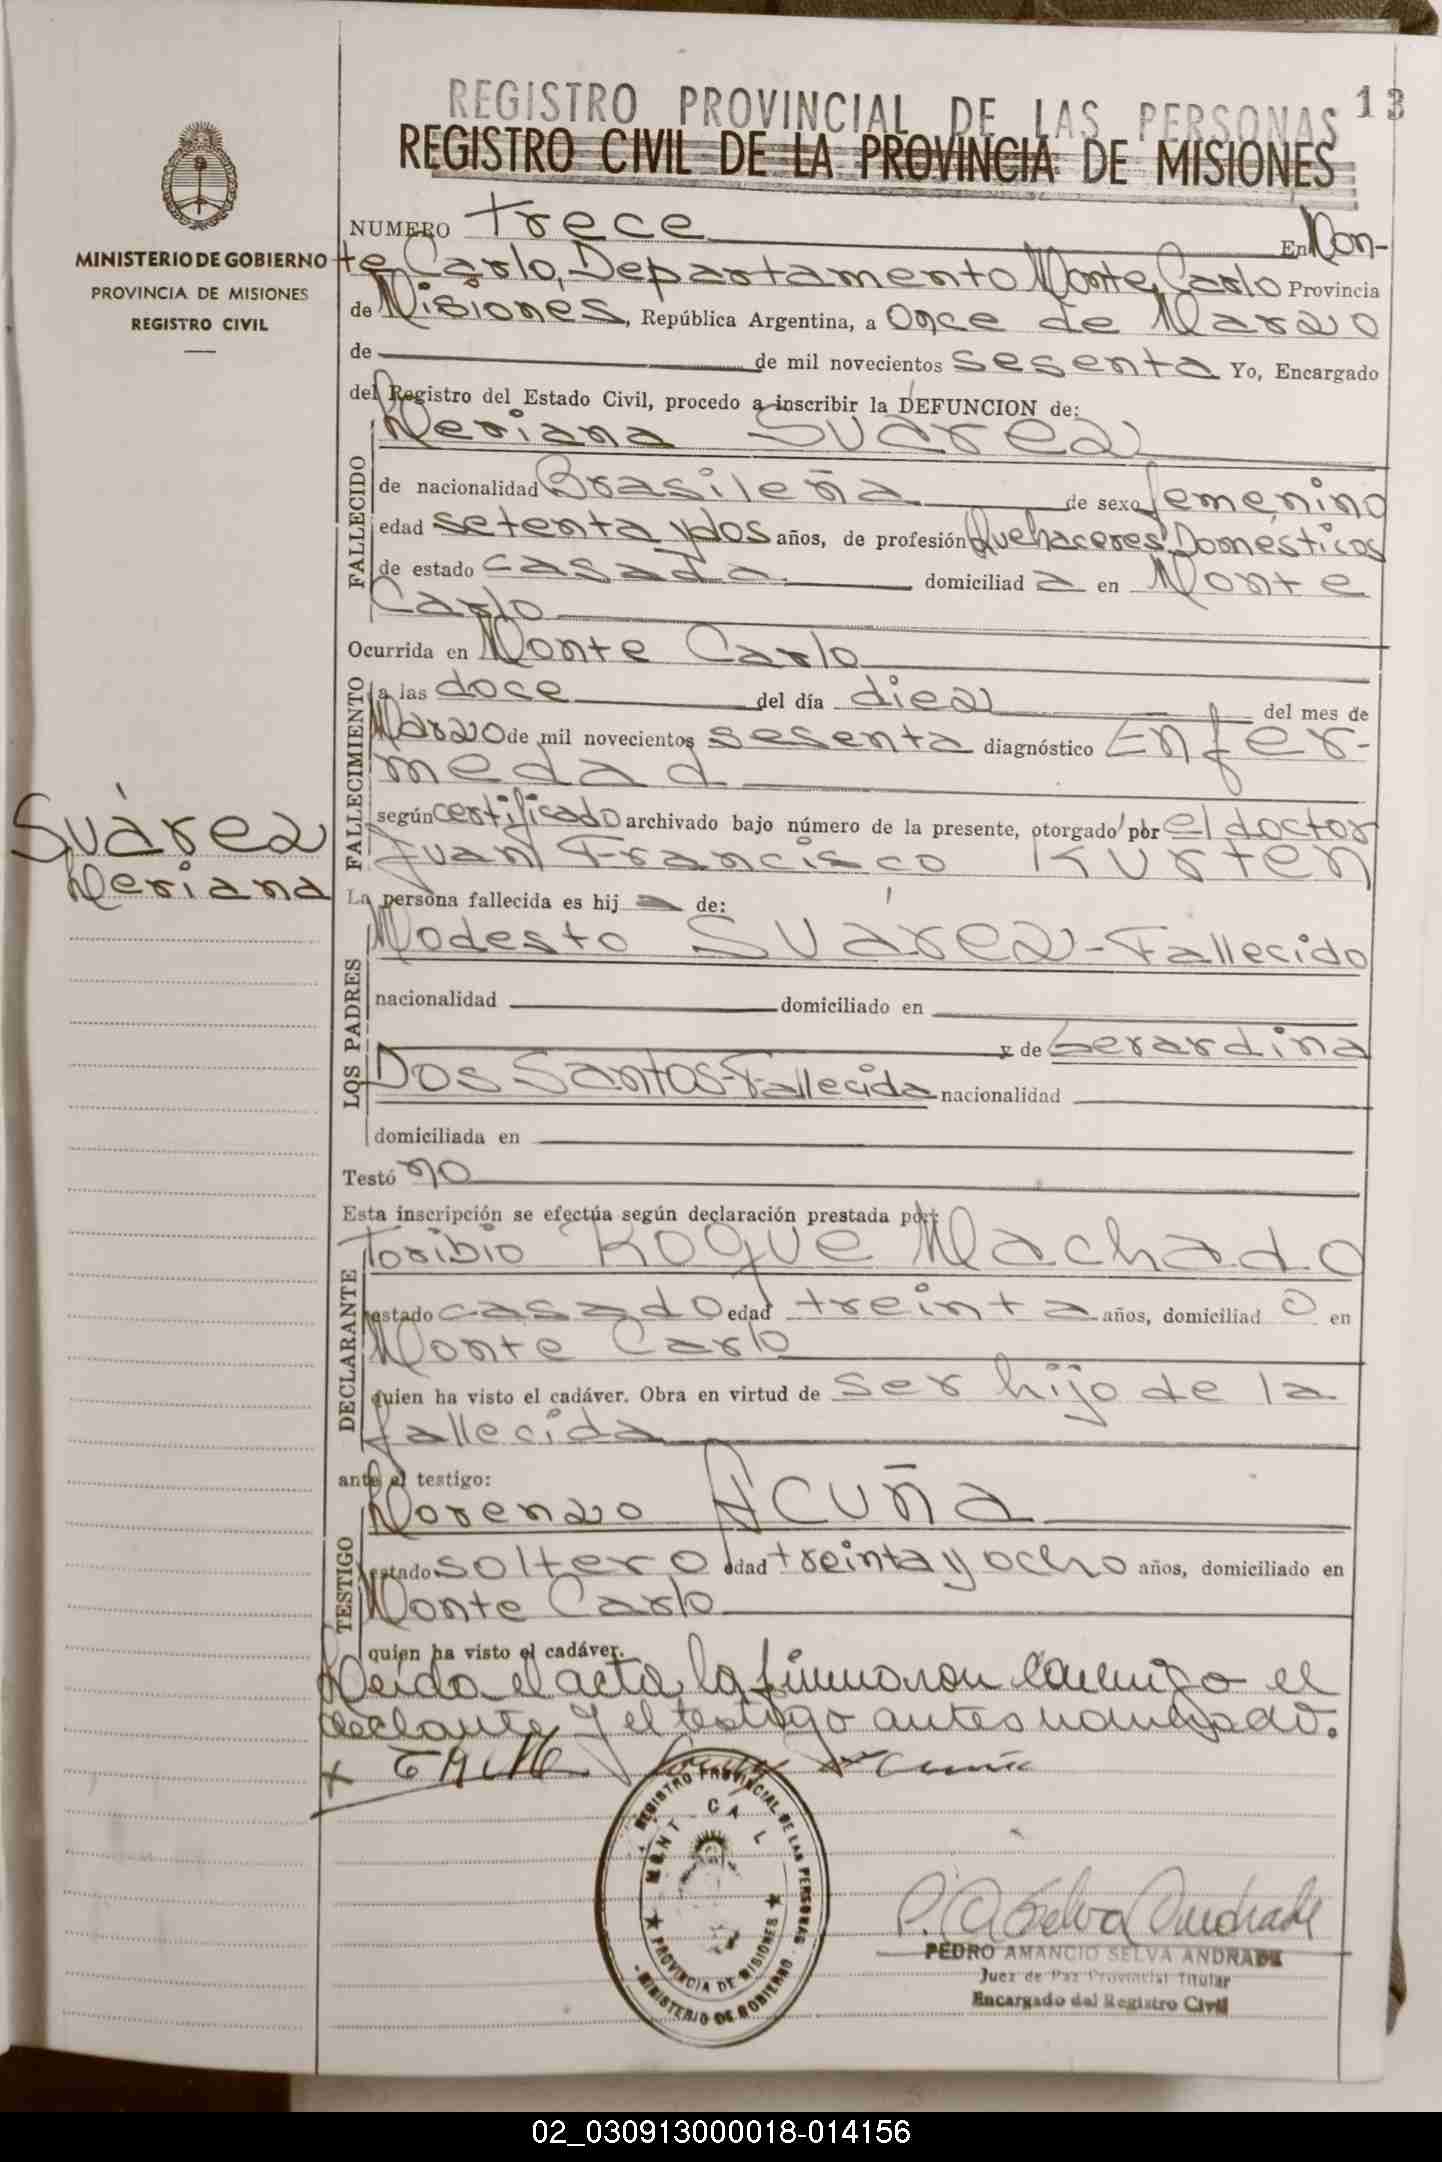 REGISTRO PROVINCIAL DE LAS PERSONAS 13
REGISTRO CIVIL DE LA PROVINCIA DE MISIONES
MINISTERIO DE GOBIERNO
PROVINCIA DE MISIONES
REGISTRO CIVIL
NUMERO trece En Mon-
te Carlo, Departamento Monte Carlo Provincia
de Misiones, República Argentina, a once de Marzo
de de mil novecientos sesenta Yo, Encargado
del Registro del Estado Civil, procedo a inscribir la DEFUNCION de:
Meriana Suárez
FALLECIDO
de nacionalidad Brasileña de sexo femenino
edad setenta y dos años, de profesión Quehaceres Domésticos
de estado casada domiciliad a en Monte
Carlo
Ocurrida en Monte Carlo
FALLECIMIENTO
a las doce del día diez del mes de
Marzo de mil novecientos sesenta diagnóstico Enfer-
medad
según certificado archivado bajo número de la presente, otorgado por el doctor
Juan Francisco Kurten
Suárez
Meriana
La persona fallecida es hij a de:
LOS PADRES
Modesto Suárez - Fallecido
nacionalidad domiciliado en
y de Gerardina
Dos Santos - Fallecida nacionalidad
domiciliada en
Testó no
Esta inscripción se efectúa según declaración prestada por:
DECLARANTE
Toribio Roque Machado
estado casado edad treinta años, domiciliad o en
Monte Carlo
quien ha visto el cadáver. Obra en virtud de ser hijo de la
fallecida
ante el testigo:
TESTIGO
Lorenzo Acuña
estado soltero edad treinta y ocho años, domiciliado en
Monte Carlo
quien ha visto el cadáver.
Leída el acta la firmaron conmigo el
declante y el testigo antes nombrado.
REGISTRO PROVINCIAL DE LAS PERSONAS
MONT CAL
PROVINCIA DE MISIONES
MINISTERIO DE GOBIERNO
P. A. Selva Andrade
PEDRO AMANCIO SELVA ANDRADE
Juez de Paz Provincial Titular
Encargado del Registro Civil
02_030913000018-014156